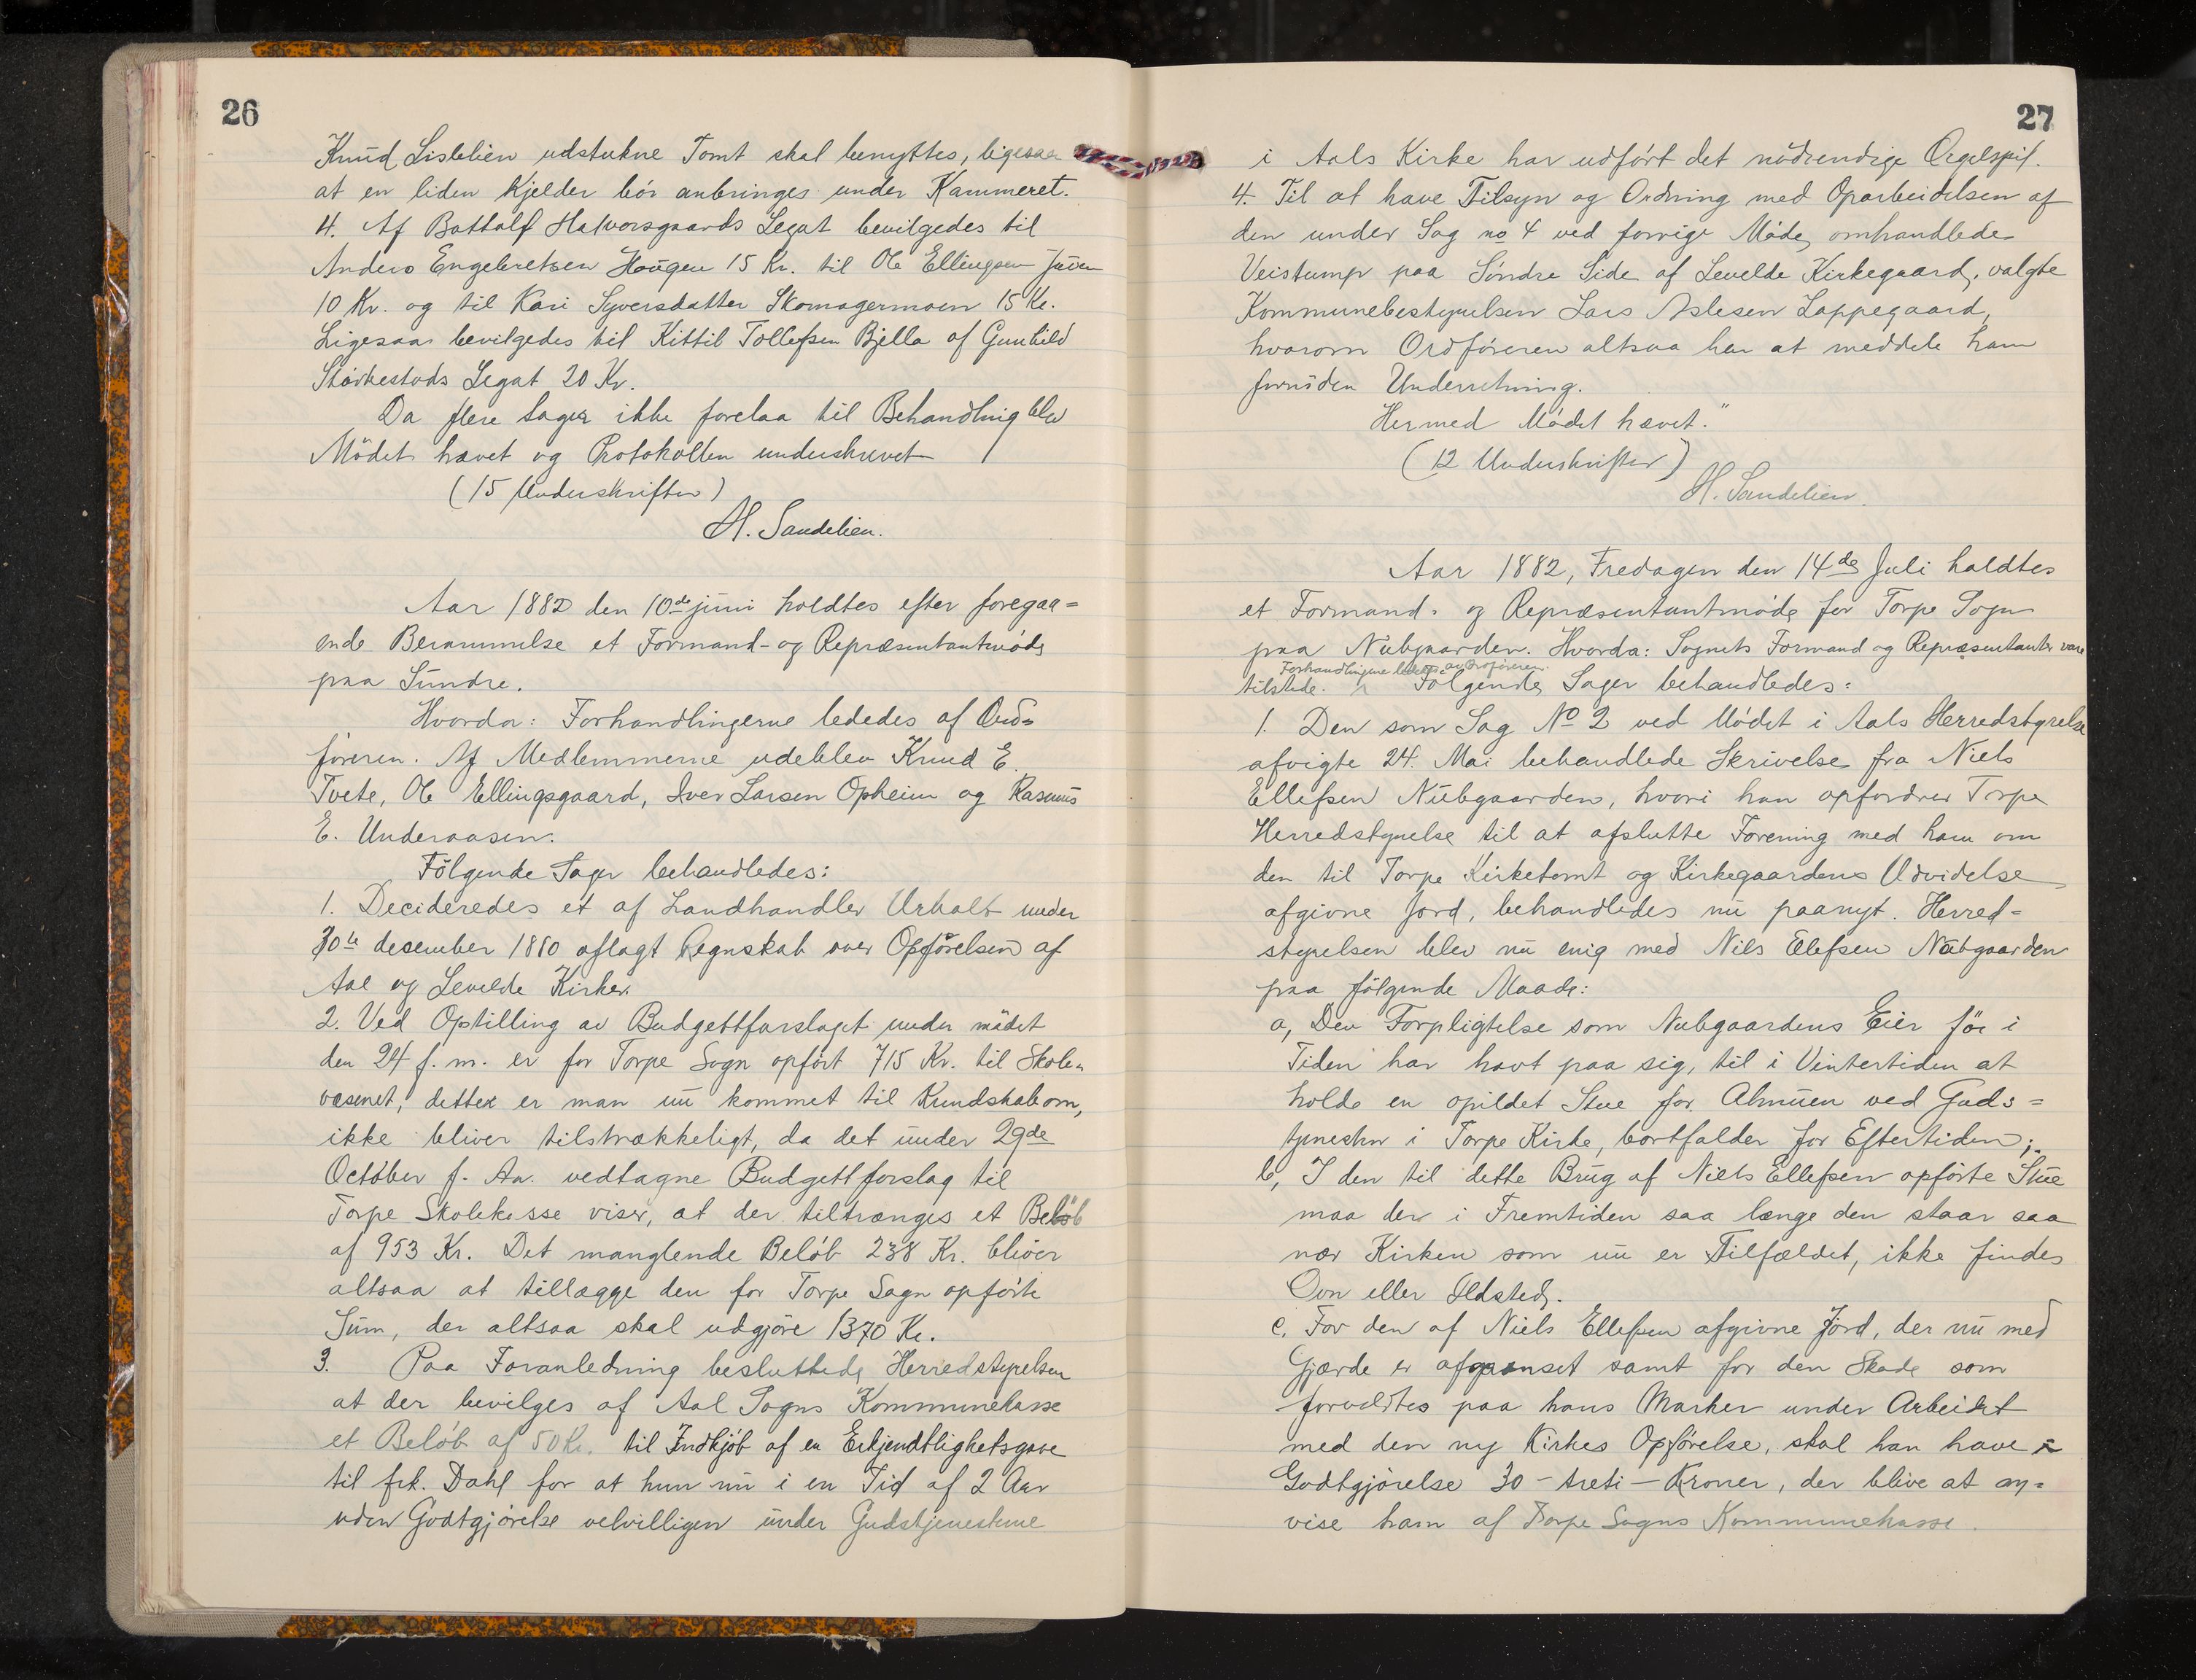 26
Knud Lislelien udstukne Tomt skal benyttes, ligesaa
at en liden Kjelder bör anbringes under Kammeret.
4. Af Bottolf Halvorsgaards Legat bevilgedes til
Anders Engebretsen Haugen 15 Kr. til Ole Ellingsen
10 Kr. og til Kari Syversdatter Skomagermoen 15 Kr.
Ligesaa bevilgedes til Kittil Tollefsen Bjella af Gunhild
Störkestads Legat 20 Kr.
Da flere Sager ikke forelaa til Behandling blev
Mödet hævet og Protokollen underskrevet
(15 Underskrifter)
H. Sandelien.
Aar 1882 den 10de juni holdtes efter foregaa=
ende Berammelse et Formand- og Repræsentantmöde
paa Sundre.
Hvorda: Forhandlingerne lededes af Ord=
föreren. Af Medlemmerne udeblev Knud E.
Tvete, Ole Ellingsgaard, Iver Larsen Opheim og Rasmus
E. Underaasen.
Fölgende Sager behandledes:
1. Decideredes et af Landhandler Urhalt under
30te desember 1880 aflagt Regnskab over Opförelsen af
Aal og Levelde Kirker.
2. Ved Opstilling av Budgettforslaget under mödet
den 24 f. m. er for Torpe Sogn opfört 715 Kr. til Skole=
væsenet, dette er man nu kommet til Kundskab om,
ikke bliver tilstrækkeligt, da det under 29de
October f. Aa. vedtagne Budgettforslag til
Torpe Skolekasse viser, at der tiltrænges et Belöb
af 953 Kr. Det manglende Belöb 238 Kr. bliver
altsaa at tillægge den for Torpe Sogn opförte
Sum, der altsaa skal udgjöre 1370 Kr.
3. Paa Foranledning besluttede Herredstyrelsen
at der bevilges af Aal Sogns Kommunekasse
et Belöb af 50 Kr. til Indkjöb af en Erkjendtlighetsgave
til frk. Dahl for at hun nu i en Tid af 2 Aar
uden Godtgjörelse velvilligen under Gudstjenesterne
27
i Aals Kirke har udfört det nödvendige Orgelspil.
4. Til at have Tilsyn og Ordning med Oparbeidelsen af
den under Sag no 4 ved forrige Möde omhandlede
Veistump paa Söndre Side af Levelde Kirkegaard, valgte
Kommunebestyrelsen Lars Aslesen Lappegaard,
hvorom Ordföreren altsaa har at meddele ham
fornöden Underretning.
Hermed Mödet hævet."
(12 Underskrifter)
H. Sandelien.
Aar 1882, Fredagen den 14de Juli holdtes
et Formand- og Repræsentantmöde for Torpe Sogn
paa Nubgaarden. Hvorda: Sognets Formand og Repræsentanter vare
Forhandlingerne lededes av Ordföreren.
tilstede. Fölgende Sager behandledes:
1. Den som Sag No 2 ved Mödet i Aals Herredstyrelse
afvigte 24. Mai behandlede Skrivelse fra Niels
Ellefsen Nubgaarden, hvori han opfordrer Torpe
Herredstyrelse til at afslutte Forening med ham om
den til Torpe Kirketomt og Kirkegaardens Udvidelse
afgivne Jord, behandledes nu paanyt. Herred=
styrelsen blev nu enig med Nils Ellefsen Nubgaarden
paa fölgende Maade:
a, Den Forpligtelse som Nubgaardens Eier för i
Tiden har havt paa sig, til i Vintertiden at
holde en opildet Stue for Almuen ved Guds=
tjenester i Torpe Kirke, bortfalder for Eftertiden;
b, I den til dette Brug af Niels Ellefsen opförte Stue
maa der i Fremtiden saa længe den staar saa
nær Kirken som nu er Tilfældet, ikke findes
Ovn eller Ildsted.
c. For den af Niels Ellefsen afgivne Jord, der nu med
Gjærde er afgrænset samt for den Skade som
forvoldtes paa hans Marker under Arbeidet
med den ny Kirkes Opförelse, skal han have i
Godtgjörelse 30 - treti - Kroner, der blive at an=
vise ham af Torpe Sogns Kommunekasse.